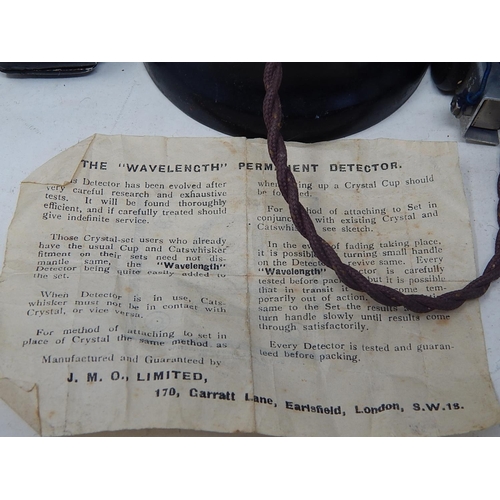 THE "WAVELENGTH" PERMANENT DETECTOR.
is Detector has been evolved after
very careful research and exhaustive
tests. It will be found thoroughly
efficient, and if carefully treated should
give indefinite service.
Those Crystal-set users who already
have the usual Cup and Catswhisker
fitment on their sets need not dis-
mantle same, the "Wavelength"
Detector being quite easily added to
the set.
When Detector is in use, Cats-
whisker must not be in contact with
Crystal, or vice versa.
For method of attaching to set in
place of Crystal the same method as
when up a Crystal Cup should
be followed.
For method of attaching to Set in
conjunction with existing Crystal and
Catswhisker see sketch.
In the event of fading taking place,
it is possible by turning small handle
on the Detector to revive same. Every
"Wavelength" Detector is carefully
tested before packing but it is possible
that in transit it may become tem-
porarily out of action,
same to the Set the results
turn handle slowly until results come
through satisfactorily.
Every Detector is tested and guaran-
teed before packing.
Manufactured and Guaranteed by
J. M. O., LIMITED,
170, Garratt Lane, Earlsfield, London, S.W.18.